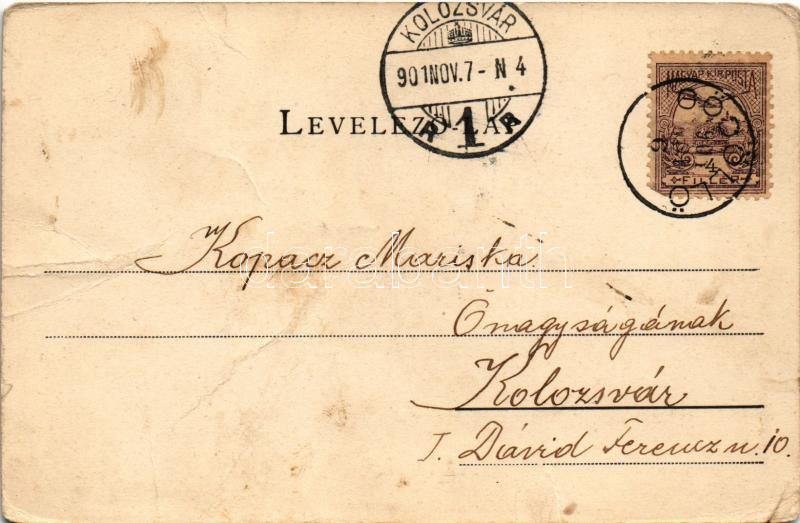 KOLOZSVÁR
901 NOV. 7 - N 4
1
LEVELEZŐ-LAP
MAGYAR KIR. POSTA
4
FILLÉR
Kopacz Mariska
Önagyságának
Kolozsvár
Dávid Ferencz u. 10.
darabanth